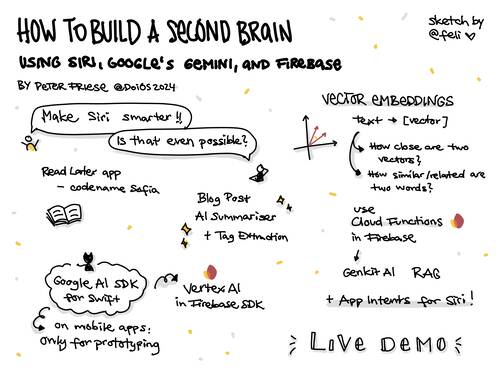 HOW TO BUILD A SECOND BRAIN
USING SIRI, GOOGLE'S GEMINI, AND FIREBASE
BY PETER FRIESE @DOiOS 2024
sketch by
@feli
Make Siri smarter!!
Is that even possible?
Read Later app
- codename Sofia
Blog Post
AI Summariser
+ Tag Extraction
Google AI SDK
for Swift
on mobile apps:
only for prototyping
Vertex AI
in Firebase SDK
VECTOR EMBEDDINGS
text → [vector]
How close are two
vectors?
How similar/related are
two words?
use
Cloud Functions
in Firebase
Genkit AI RAG
+ App Intents for Siri!
LIVE DEMO